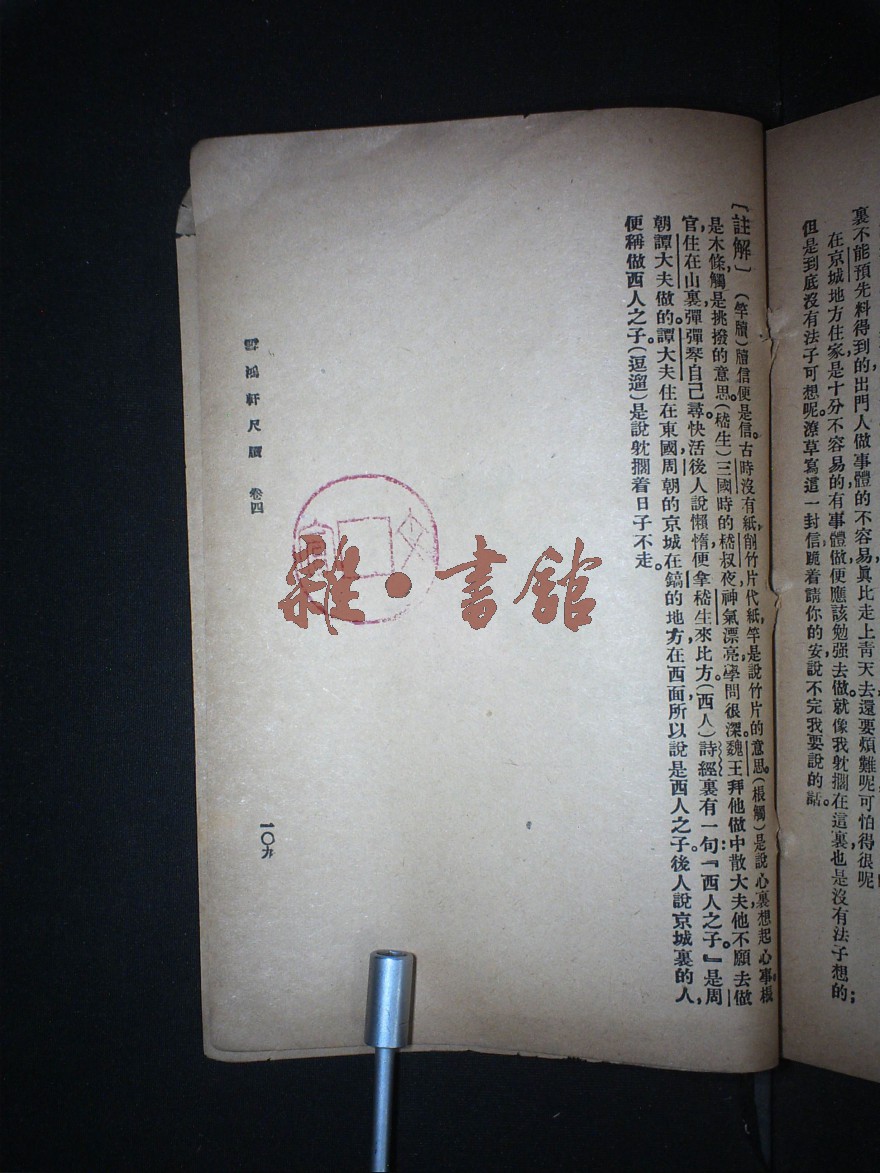 裏不能預先料得到的出門人做事體的不容易眞比走上靑天去還要煩難呢可怕得很呢
在京城地方住家是十分不容易的有事體做便應該勉强去做。就像我躭擱在這裏也是沒有法子想的；
但是到底沒有法子可想呢。潦草寫這一封信跪着請你的安說不完我要說的話。
〔註解〕（竿牘）牘信便是信。古時沒有紙，削竹片代紙，竿是說竹片的意思。（棖觸）是說心裏想起心事。棖
是木條，觸是挑撥的意思。（嵇生）三國時的嵇叔夜神氣漂亮，學問很深。魏王拜他做中散大夫他不願去做
官，住在山裏彈彈琴自己尋快活。後人說懶惰便拿嵇生來比方。（西人）詩經裏有一句：『西人之子。』是周
朝譚大夫做的。譚大夫住在東國，周朝的京城在鎬的地方在西面，所以說是西人之子。後人說京城裏的人，
便稱做西人之子。（逗遛）是說躭擱着日子不走。
雪鴻軒尺牘 卷四
一〇九
雜·書館